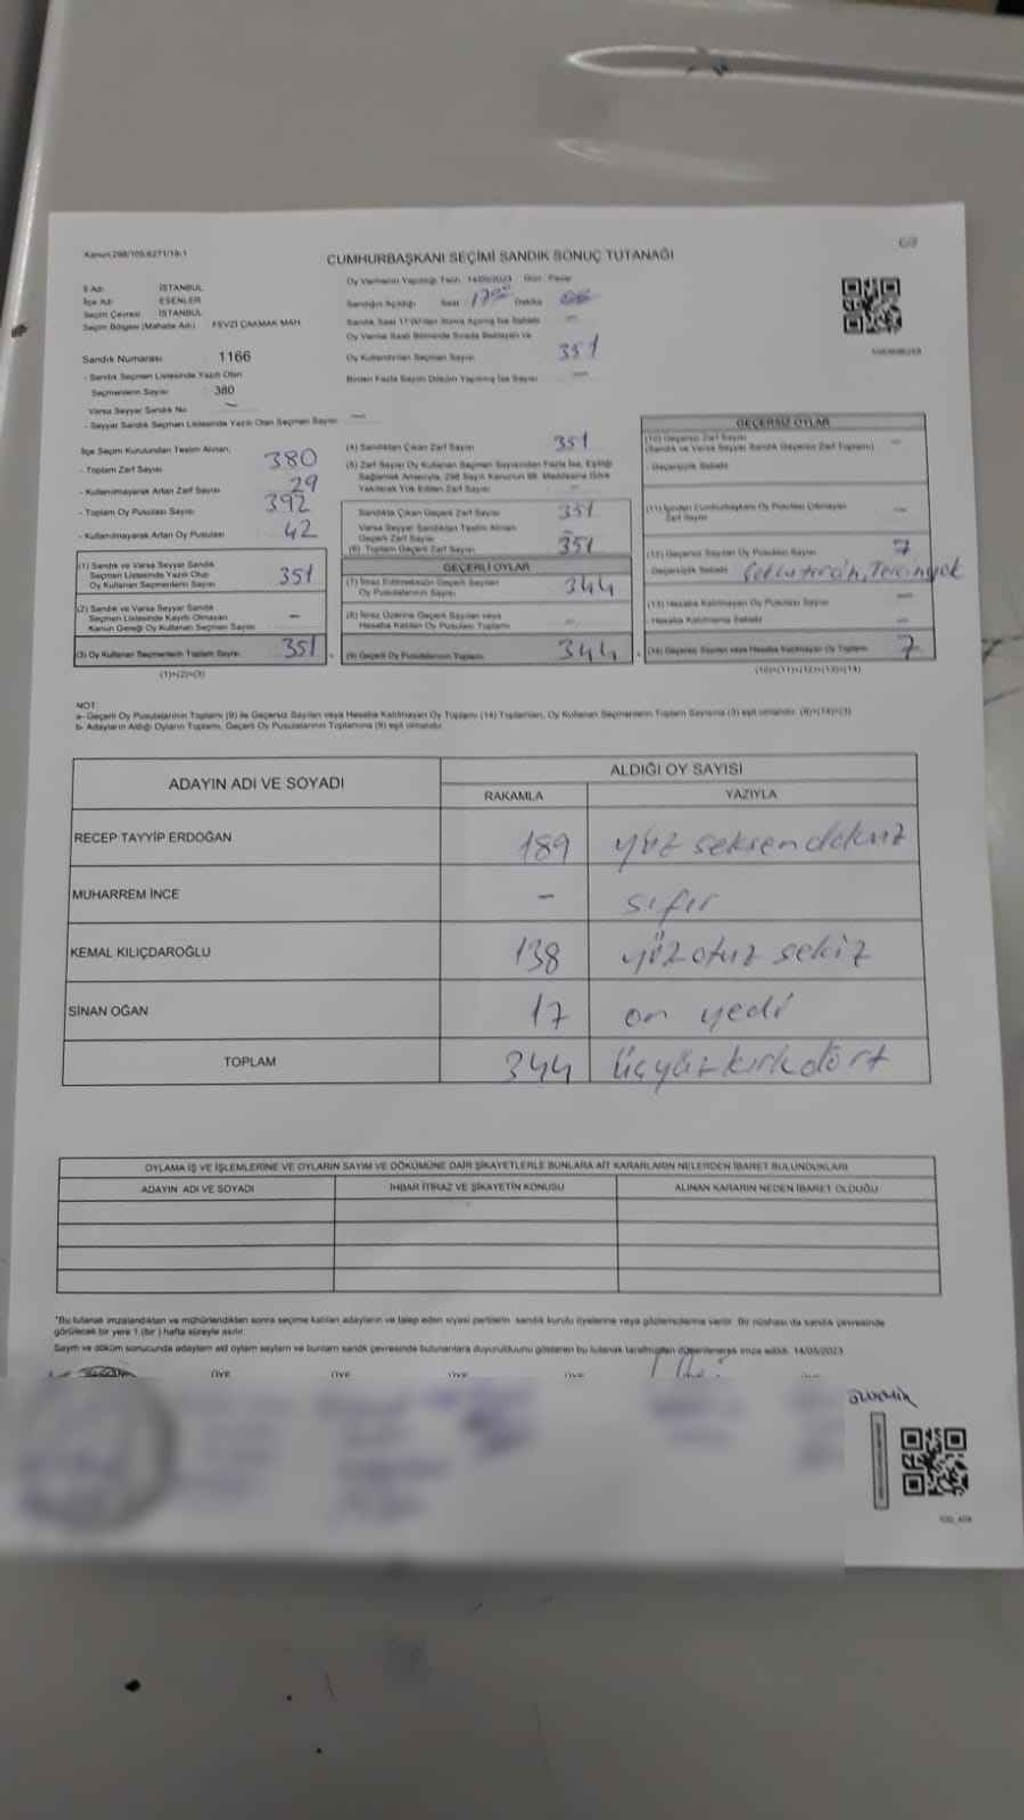 Kanun:298/105,6271/18-1
CUMHURBAŞKANI SEÇİMİ SANDIK SONUÇ TUTANAĞI
İl Adı: İSTANBUL
İlçe Adı: ESENLER
Seçim Çevresi: İSTANBUL
Seçim Bölgesi (Mahalle Adı): FEVZİ ÇAKMAK MAH
Sandık Numarası: 1166
- Sandık Seçmen Listesinde Yazılı Olan
Seçmenlerin Sayısı: 380
Varsa Seyyar Sandık No
- Seyyar Sandık Seçmen Listesinde Yazılı Olan Seçmen Sayısı: —
Oy Vermenin Yapıldığı Tarih: 14/05/2023 Gün: Pazar
Sandığın Açıldığı Saat Dakika
Oy Kullandırılan Seçmen Sayısı: 351
Birden Fazla Sayım Döküm Yapılmış İse Sayısı: —
İlçe Seçim Kurulundan Teslim Alınan;
- Toplam Zarf Sayısı: 380
- Kullanılmayarak Artan Zarf Sayısı: 29
- Toplam Oy Pusulası Sayısı: 392
- Kullanılmayarak Artan Oy Pusulası: 42
(1) Sandık ve Varsa Seyyar Sandık
Seçmen Listesinde Yazılı Olup
Oy Kullanan Seçmenlerin Sayısı: 351
(2) Sandık ve Varsa Seyyar Sandık
Seçmen Listesinde Kayıtlı Olmayan
Kanun Gereği Oy Kullanan Seçmen Sayısı: –
(3) Oy Kullanan Seçmenlerin Toplam Sayısı: 351
(1)+(2)=(3)
(4) Sandıktan Çıkan Zarf Sayısı: 351
(5) Zarf Sayısı Oy Kullanan Seçmen Sayısından Fazla İse, Eşitliği
Sağlamak Amacıyla, 298 Sayılı Kanunun 98. Maddesine Göre
Yakılarak Yok Edilen Zarf Sayısı: —
Sandıkta Çıkan Geçerli Zarf Sayısı: 351
Varsa Seyyar Sandıktan Teslim Alınan
Geçerli Zarf Sayısı: –
(6) Toplam Geçerli Zarf Sayısı: 351
GEÇERLİ OYLAR
(7) İtiraz Edilmeksizin Geçerli Sayılan
Oy Pusulalarının Sayısı: 344
(8) İtiraz Üzerine Geçerli Sayılan veya
Hesaba Katılan Oy Pusulası Toplamı: –
(9) Geçerli Oy Pusulalarının Toplamı: 344
GEÇERSİZ OYLAR
(10) Geçersiz Zarf Sayısı
(Sandık ve Varsa Seyyar Sandık Geçersiz Zarf Toplamı) –
- Geçersizlik Sebebi:
(11) İçinden Cumhurbaşkanı Oy Pusulası Çıkmayan
Zarf Sayısı —
(12) Geçersiz Sayılan Oy Pusulası Sayısı: 7
- Geçersizlik Sebebi:
(13) Hesaba Katılmayan Oy Pusulası Sayısı: —
- Hesaba Katılmama Sebebi: —
(14) Geçersiz Sayılan veya Hesaba Katılmayan Oy Toplamı: 7
(10)+(11)+(12)+(13)=(14)
NOT:
a- Geçerli Oy Pusulalarının Toplamı (9) ile Geçersiz Sayılan veya Hesaba Katılmayan Oy Toplamı (14) Toplamları, Oy Kullanan Seçmenlerin Toplam Sayısına (3) eşit olmalıdır. (9)+(14)=(3)
b- Adayların Aldığı Oyların Toplamı, Geçerli Oy Pusulalarının Toplamına (9) eşit olmalıdır.
ADAYIN ADI VE SOYADI
ALDIĞI OY SAYISI
RAKAMLA YAZIYLA
RECEP TAYYİP ERDOĞAN 189 yüz seksen dokuz
MUHARREM İNCE – sıfır
KEMAL KILIÇDAROĞLU 138 yüz otuz sekiz
SİNAN OĞAN 17 on yedi
TOPLAM 344 üçyüz kırk dört
OYLAMA İŞ VE İŞLEMLERİNE VE OYLARIN SAYIM VE DÖKÜMÜNE DAİR ŞİKAYETLERLE BUNLARA AİT KARARLARIN NELERDEN İBARET BULUNDUKLARI
ADAYIN ADI VE SOYADI İHBAR İTİRAZ VE ŞİKAYETİN KONUSU ALINAN KARARIN NEDEN İBARET OLDUĞU
*Bu tutanak imzalandıktan ve mühürlendikten sonra seçime katılan adayların ve talep eden siyasi partilerin sandık kurulu üyelerine veya gözlemcilerine verilir. Bir nüshası da sandık çevresinde
görülecek bir yere 1 (bir) hafta süreyle asılır.
Sayım ve döküm sonucunda adayların ad oylarını sayılarını ve bunların sandık çevresinde bulunanlara duyurulduğunu gösteren bu tutanak tarafımızdan düzenlenerek imza edildi. 14/05/2023
ÜYE ÜYE ÜYE ÜYE